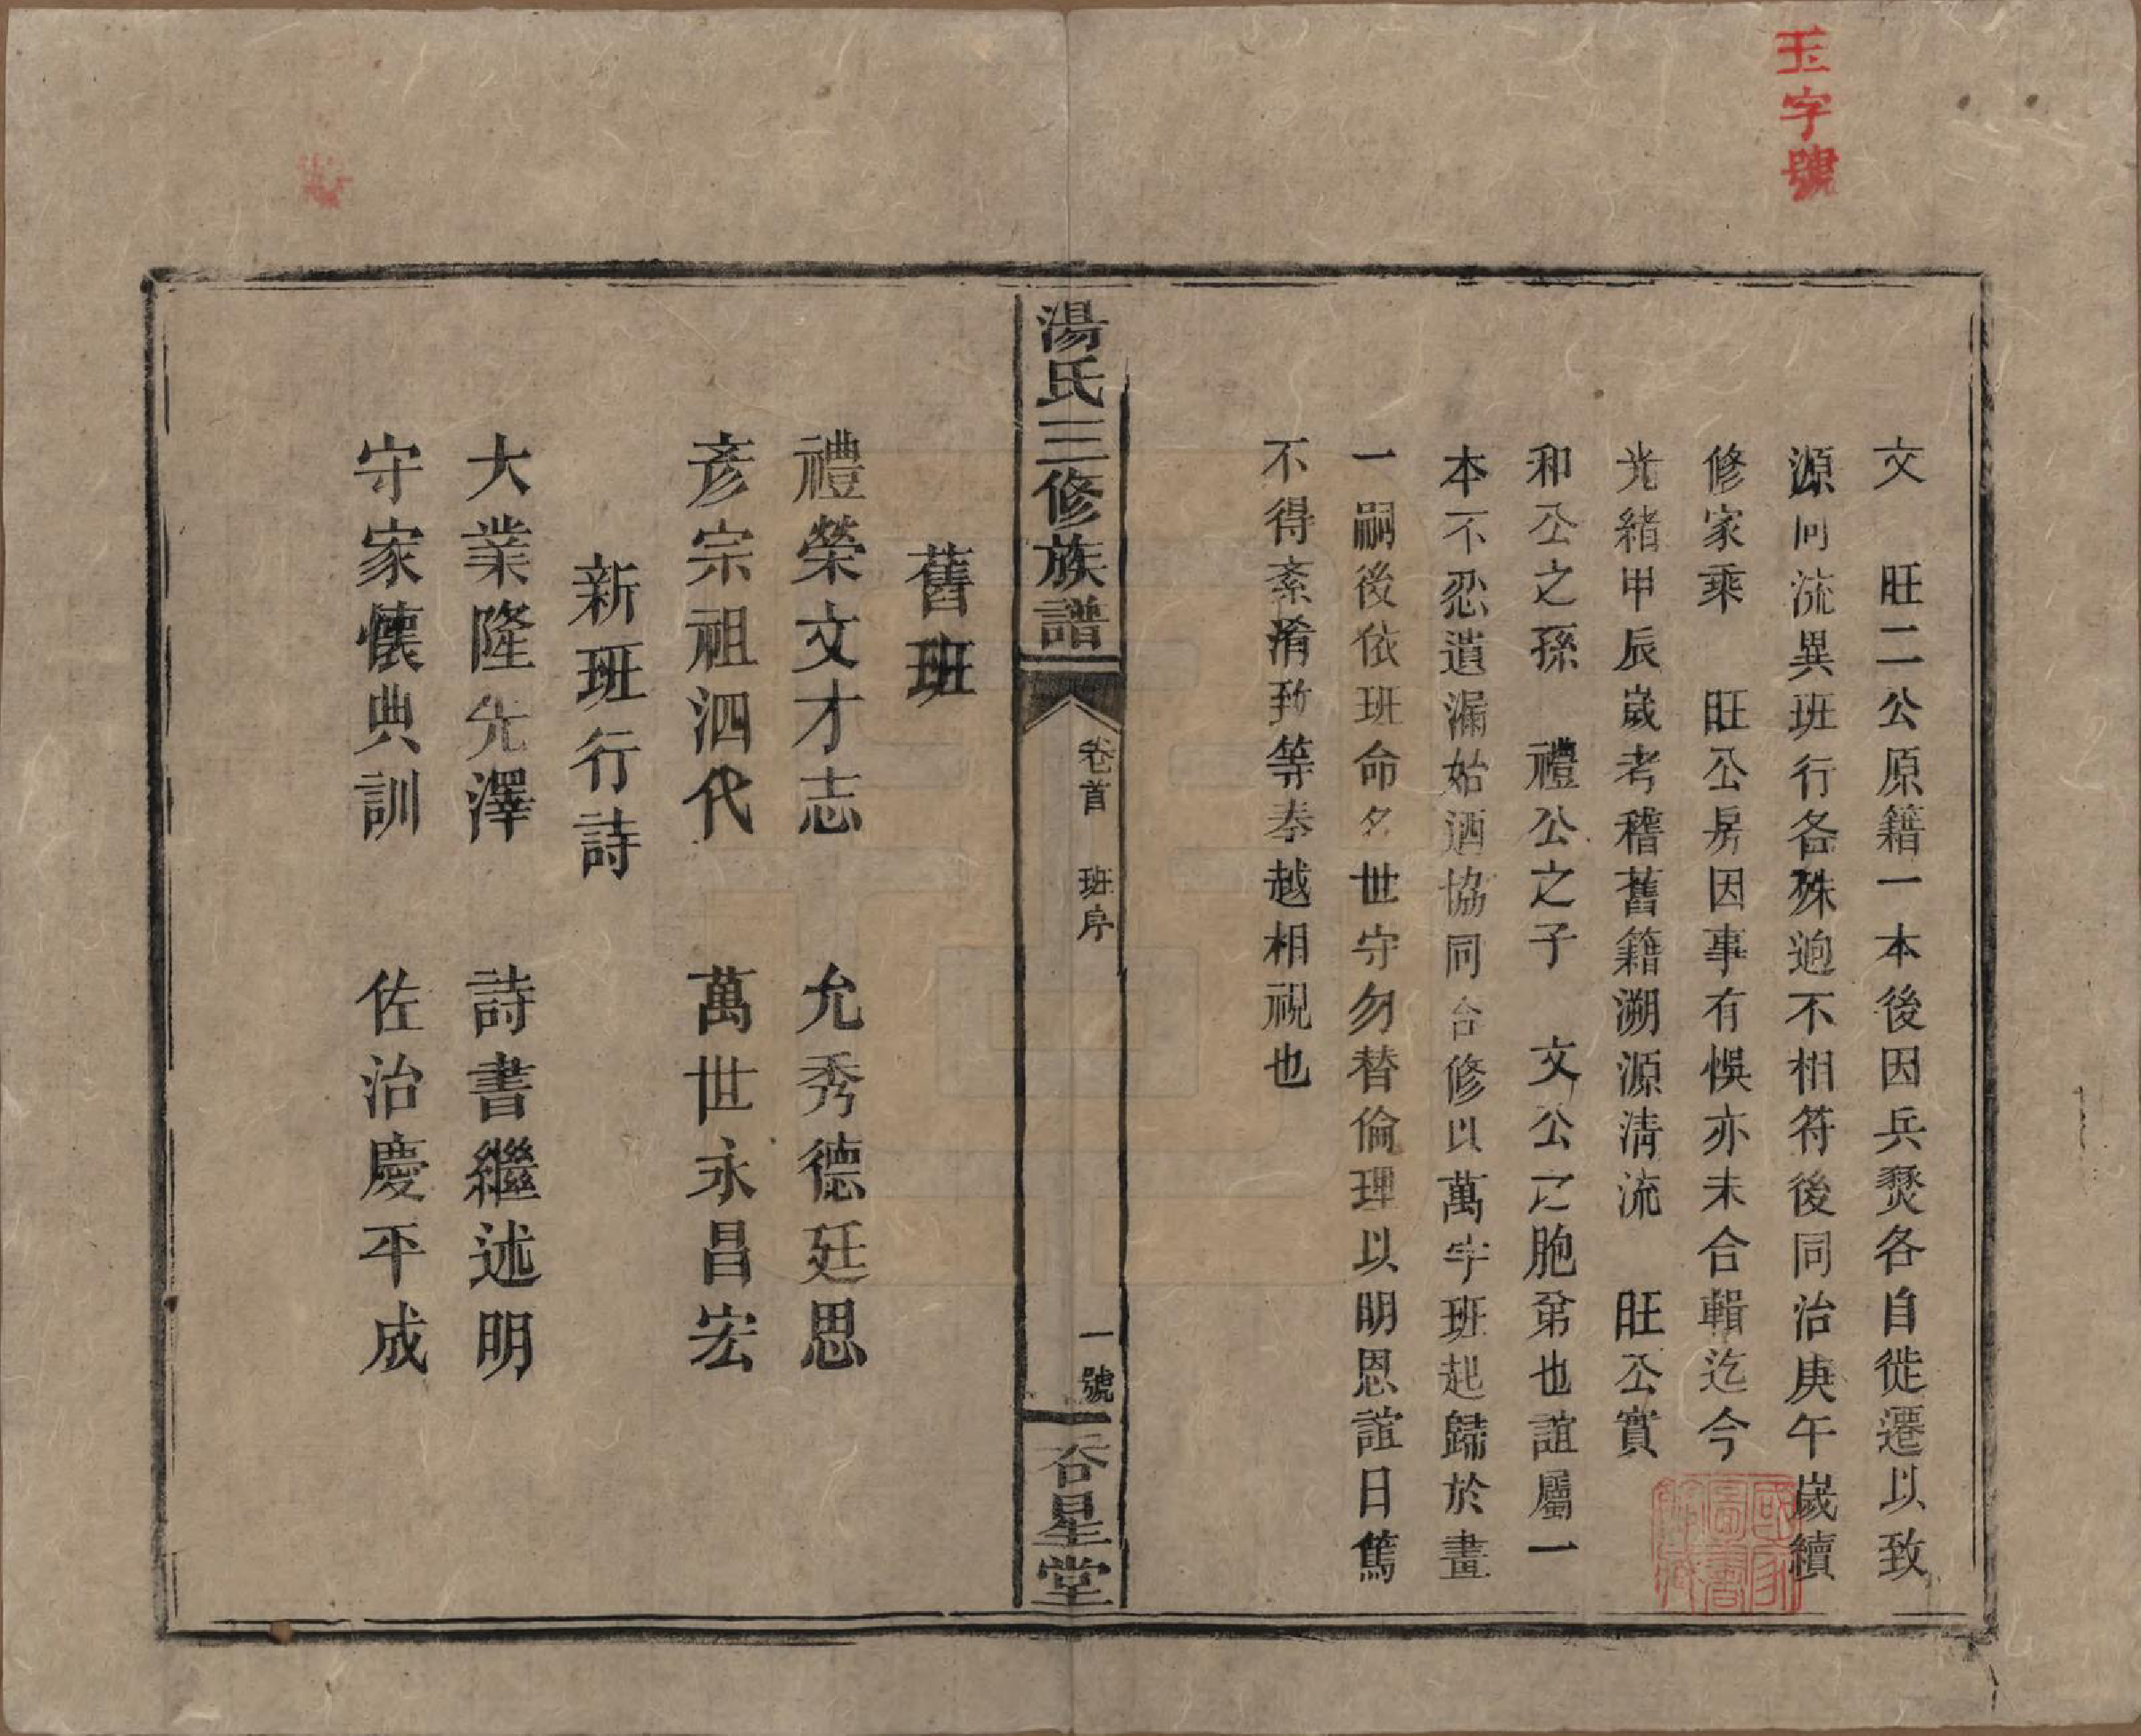 玉字號
文　旺二公原籍一本後因兵燹各自徙遷以致
源同流異班行各殊逈不相符後同治庚午嵗續
修家乘　旺公房因事有悞亦未合輯迄今
光緒甲辰嵗考稽舊籍溯源清流　旺公實
和公之孫　禮公之子　文公之胞弟也誼屬一
本不忍遺漏始迺協同合修以萬字班起歸於畫
一嗣後依班命名世守勿替倫理以明恩誼日篤
不得紊淆致等秦越相視也
國家圖書館藏
湯氏三修族譜
卷首　班序
一號
谷星堂
舊班
禮榮文才志　允秀德廷思
彥宗祖泗代　萬世永昌宏
新班行詩
大業隆先澤　詩書繼述明
守家懷典訓　佐治慶平成